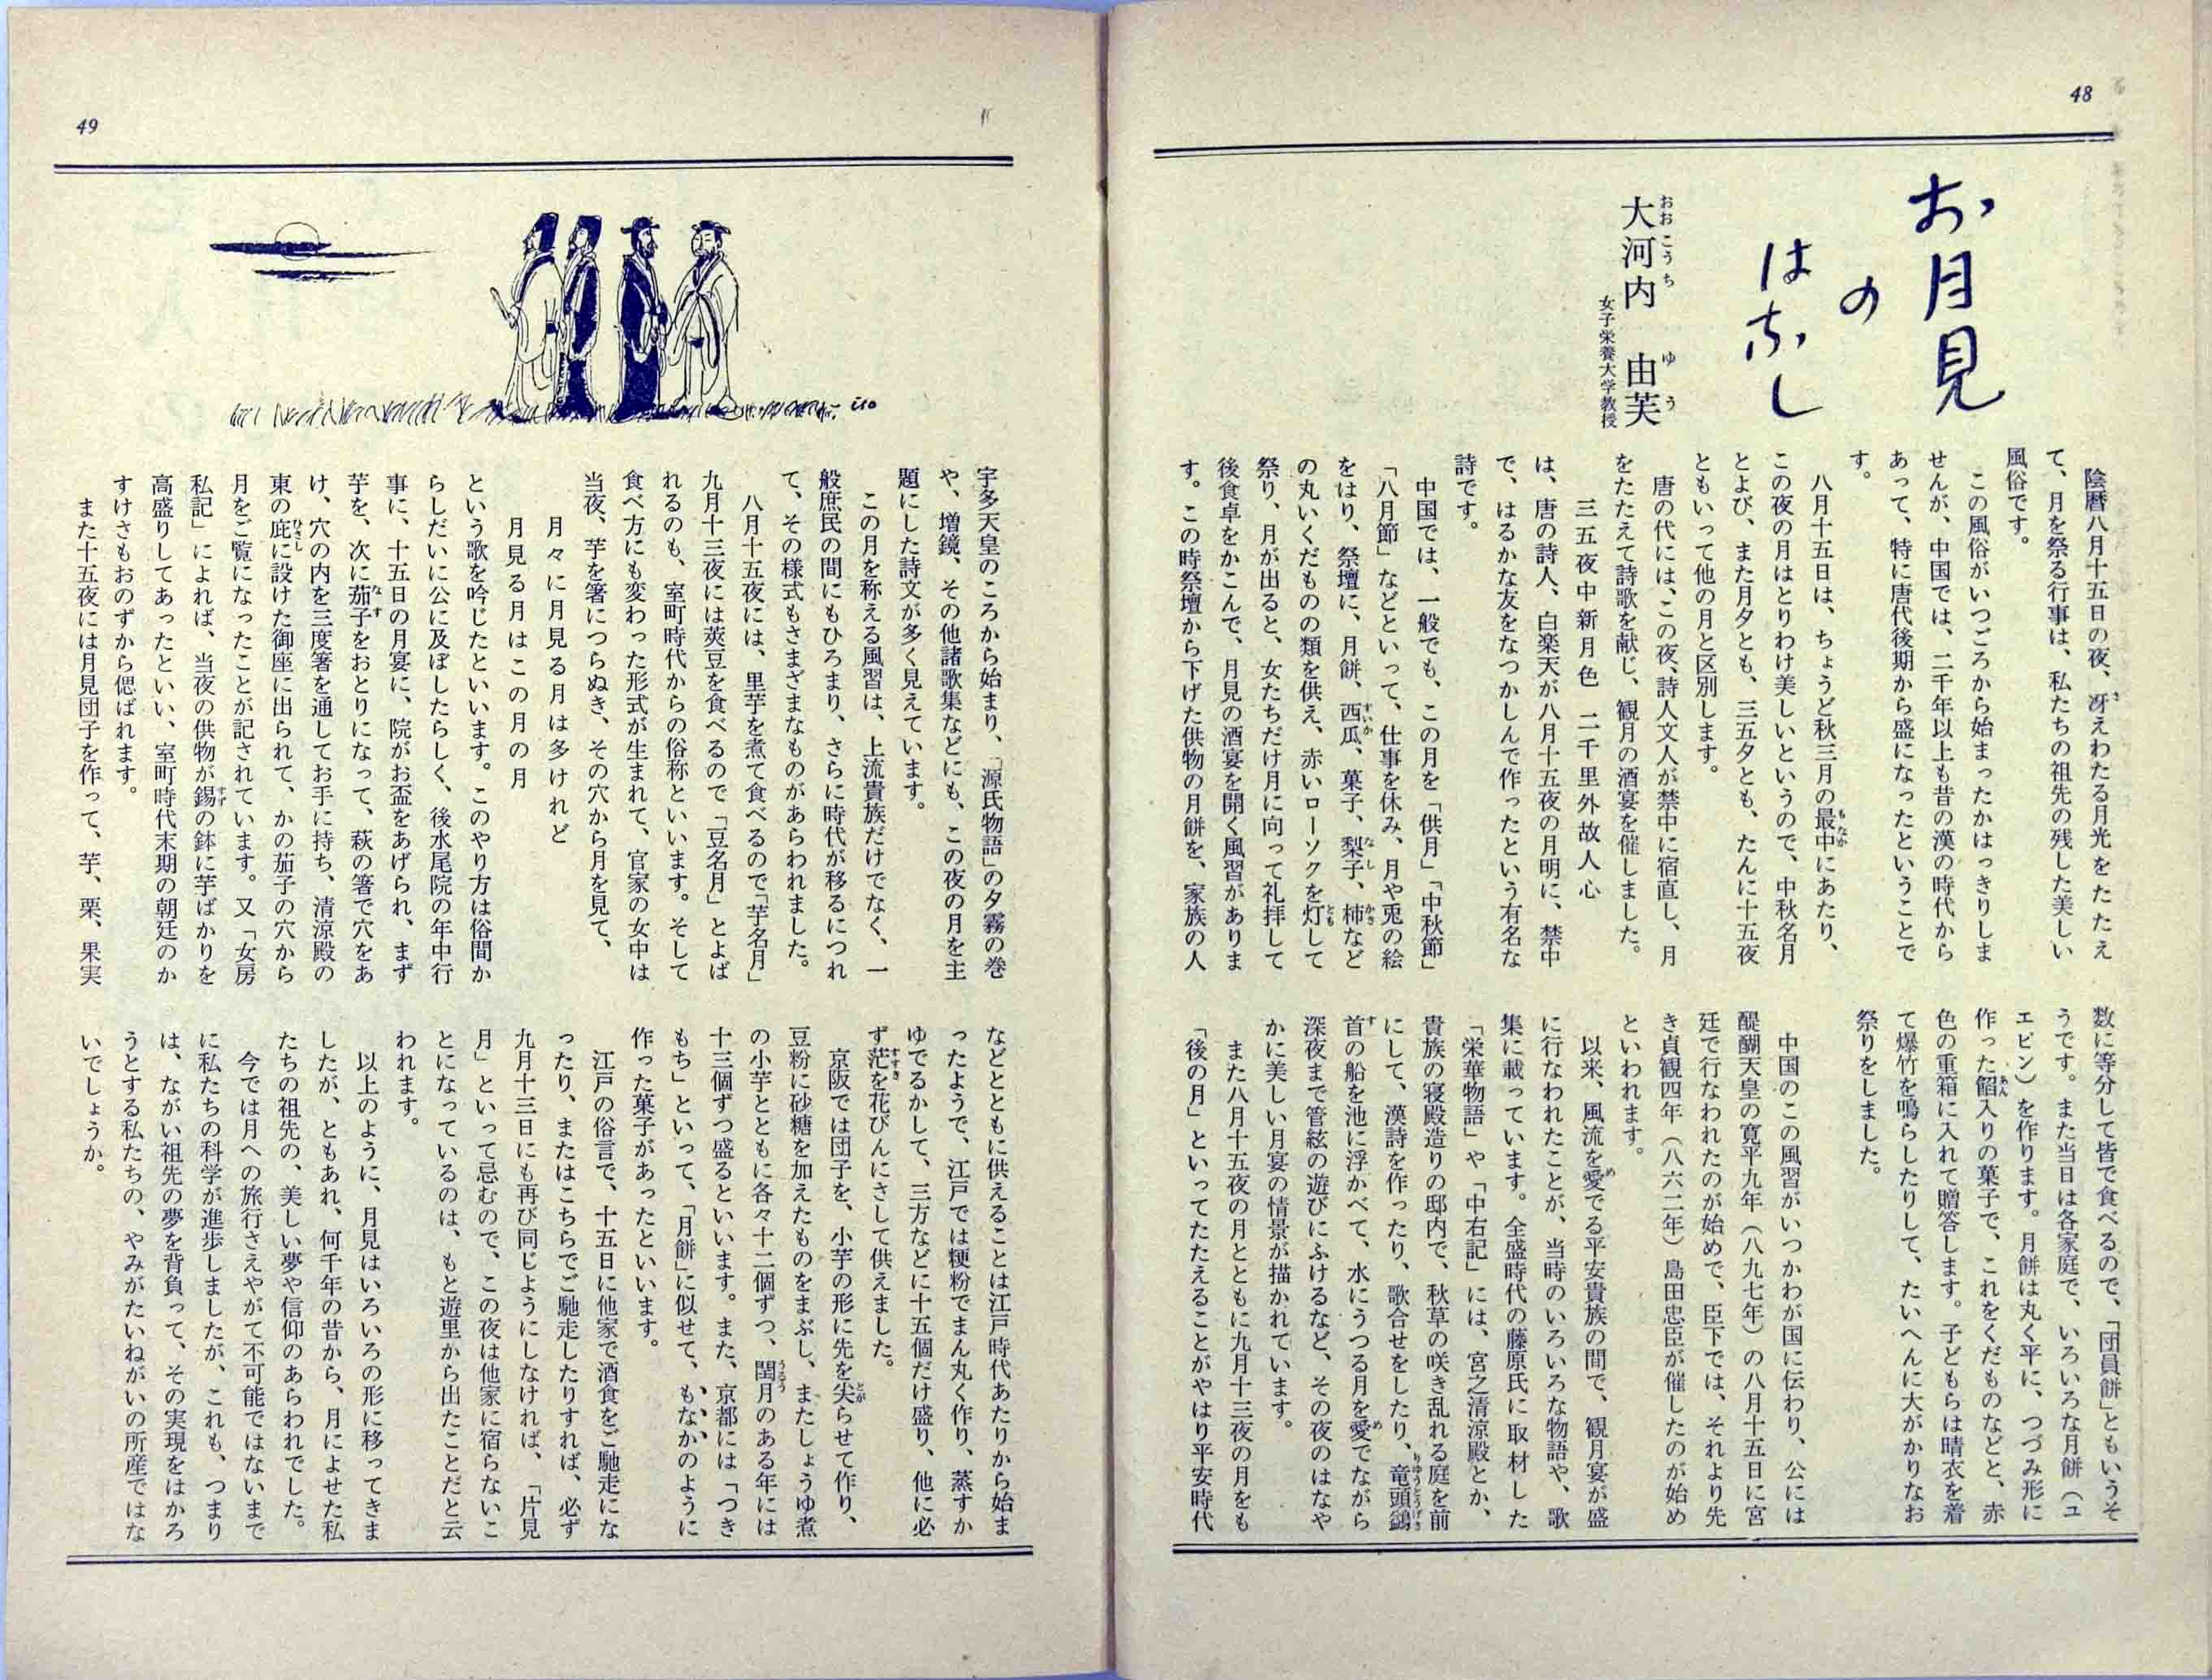 48
お月見
の
はなし
大河内　由芙
おおこうち　ゆう
女子栄養大学教授
陰暦八月十五日の夜、冴えわたる月光をたたえ
て、月を祭る行事は、私たちの祖先の残した美しい
風俗です。
この風俗がいつごろから始まったかはっきりしま
せんが、中国では、二千年以上も昔の漢の時代から
あって、特に唐代後期から盛になったということで
す。
八月十五日は、ちょうど秋三月の最中にあたり、
この夜の月はとりわけ美しいというので、中秋名月
とよび、また月夕とも、三五夕とも、たんに十五夜
ともいって他の月と区別します。
唐の代には、この夜、詩人文人が禁中に宿直し、月
をたたえて詩歌を献じ、観月の酒宴を催しました。
三五夜中新月色　二千里外故人心
は、唐の詩人、白楽天が八月十五夜の月明に、禁中
で、はるかな友をなつかしんで作ったという有名な
詩です。
中国では、一般でも、この月を「供月」「中秋節」
「八月節」などといって、仕事を休み、月や兎の絵
をはり、祭壇に、月餅、西瓜、菓子、梨子、柿など
の丸いくだものの類を供え、赤いローソクを灯して
祭り、月が出ると、女たちだけ月に向って礼拝して
後食卓をかこんで、月見の酒宴を開く風習がありま
す。この時祭壇から下げた供物の月餅を、家族の人
数に等分して皆で食べるので、「団員餅」ともいうそ
うです。また当日は各家庭で、いろいろな月餅（ユ
エビン）を作ります。月餅は丸く平に、つづみ形に
作った餡入りの菓子で、これをくだものなどと、赤
色の重箱に入れて贈答します。子どもらは晴衣を着
て爆竹を鳴らしたりして、たいへんに大がかりなお
祭りをしました。
中国のこの風習がいつかわが国に伝わり、公には
醍醐天皇の寛平九年（八九七年）の八月十五日に宮
廷で行なわれたのが始めで、臣下では、それより先
き貞観四年（八六二年）島田忠臣が催したのが始め
といわれます。
以来、風流を愛でる平安貴族の間で、観月宴が盛
に行なわれたことが、当時のいろいろな物語や、歌
集に載っています。全盛時代の藤原氏に取材した
「栄華物語」や「中右記」には、宮之清涼殿とか、
貴族の寝殿造りの邸内で、秋草の咲き乱れる庭を前
にして、漢詩を作ったり、歌合せをしたり、竜頭鷁
首の船を池に浮かべて、水にうつる月を愛でながら
深夜まで管絃の遊びにふけるなど、その夜のはなや
かに美しい月宴の情景が描かれています。
また八月十五夜の月とともに九月十三夜の月をも
「後の月」といってたたえることがやはり平安時代
49
iso
宇多天皇のころから始まり、「源氏物語」の夕霧の巻
や、増鏡、その他諸歌集などにも、この夜の月を主
題にした詩文が多く見えています。
この月を称える風習は、上流貴族だけでなく、一
般庶民の間にもひろまり、さらに時代が移るにつれ
て、その様式もさまざまなものがあらわれました。
八月十五夜には、里芋を煮て食べるので「芋名月」
九月十三夜には莢豆を食べるので「豆名月」とよば
れるのも、室町時代からの俗称といいます。そして
食べ方にも変わった形式が生まれて、官家の女中は
当夜、芋を箸につらぬき、その穴から月を見て、
月々に月見る月は多けれど
月見る月はこの月の月
という歌を吟じたといいます。このやり方は俗間か
らしだいに公に及ぼしたらしく、後水尾院の年中行
事に、十五日の月宴に、院がお盃をあげられ、まず
芋を、次に茄子をおとりになって、萩の箸で穴をあ
け、穴の内を三度箸を通してお手に持ち、清涼殿の
東の庇に設けた御座に出られて、かの茄子の穴から
月をご覧になったことが記されています。又「女房
私記」によれば、当夜の供物が錫の鉢に芋ばかりを
高盛りしてあったといい、室町時代末期の朝廷のか
すけさもおのずから偲ばれます。
また十五夜には月見団子を作って、芋、栗、果実
などとともに供えることは江戸時代あたりから始ま
ったようで、江戸では粳粉でまん丸く作り、蒸すか
ゆでるかして、三方などに十五個だけ盛り、他に必
ず茫を花びんにさして供えました。
京阪では団子を、小芋の形に先を尖らせて作り、
豆粉に砂糖を加えたものをまぶし、またしょうゆ煮
の小芋とともに各々十二個ずつ、閏月のある年には
十三個ずつ盛るといいます。また、京都には「つき
もち」といって、「月餅」に似せて、もなかのように
作った菓子があったといいます。
江戸の俗言で、十五日に他家で酒食をご馳走にな
ったり、またはこちらでご馳走したりすれば、必ず
九月十三日にも再び同じようにしなければ、「片見
月」といって忌むので、この夜は他家に宿らないこ
とになっているのは、もと遊里から出たことだと云
われます。
以上のように、月見はいろいろの形に移ってきま
したが、ともあれ、何千年の昔から、月によせた私
たちの祖先の、美しい夢や信仰のあらわれでした。
今では月への旅行さえやがて不可能ではないまで
に私たちの科学が進歩しましたが、これも、つまり
は、ながい祖先の夢を背負って、その実現をはかろ
うとする私たちの、やみがたいねがいの所産ではな
いでしょうか。